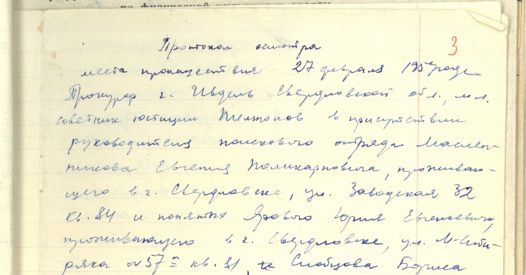 3
Протокол осмотра
места происшествия 27 февраля 1959 года
Прокурор г. Ивдель Свердловской обл., мл.
советник юстиции Темпалов в присутствии
руководителя поискового отряда Маслен-
никова Евгения Поликарповича, проживаю-
щего в г. Свердловске, ул. Заводская 32
кв. 84 и понятых Ярового Юрия Евгеньевича,
проживающего в г. Свердловске, ул. М-Сиби-
ряка 57 кв. 81, Слобцова Бориса